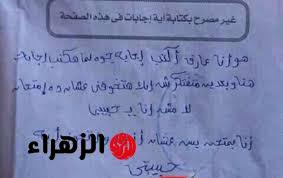 غير مصرح بكتابة أية إجابات في هذه الصفحة
هو أنا عارف أكتب إجابة جوه لما هكتب إجابات
هنا وبعدين متفتكرش إنك هتخوفني عشان ده امتحان
لا مش أنا يا حبيبتي
أنا بمتحن بس عشان
حبيبتي
الزهراء